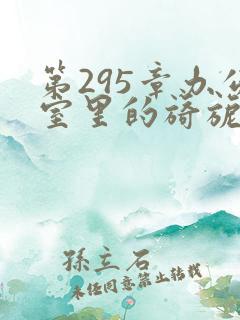 第295章办公
室里的旖旎
孫立石
未经同意禁止转载